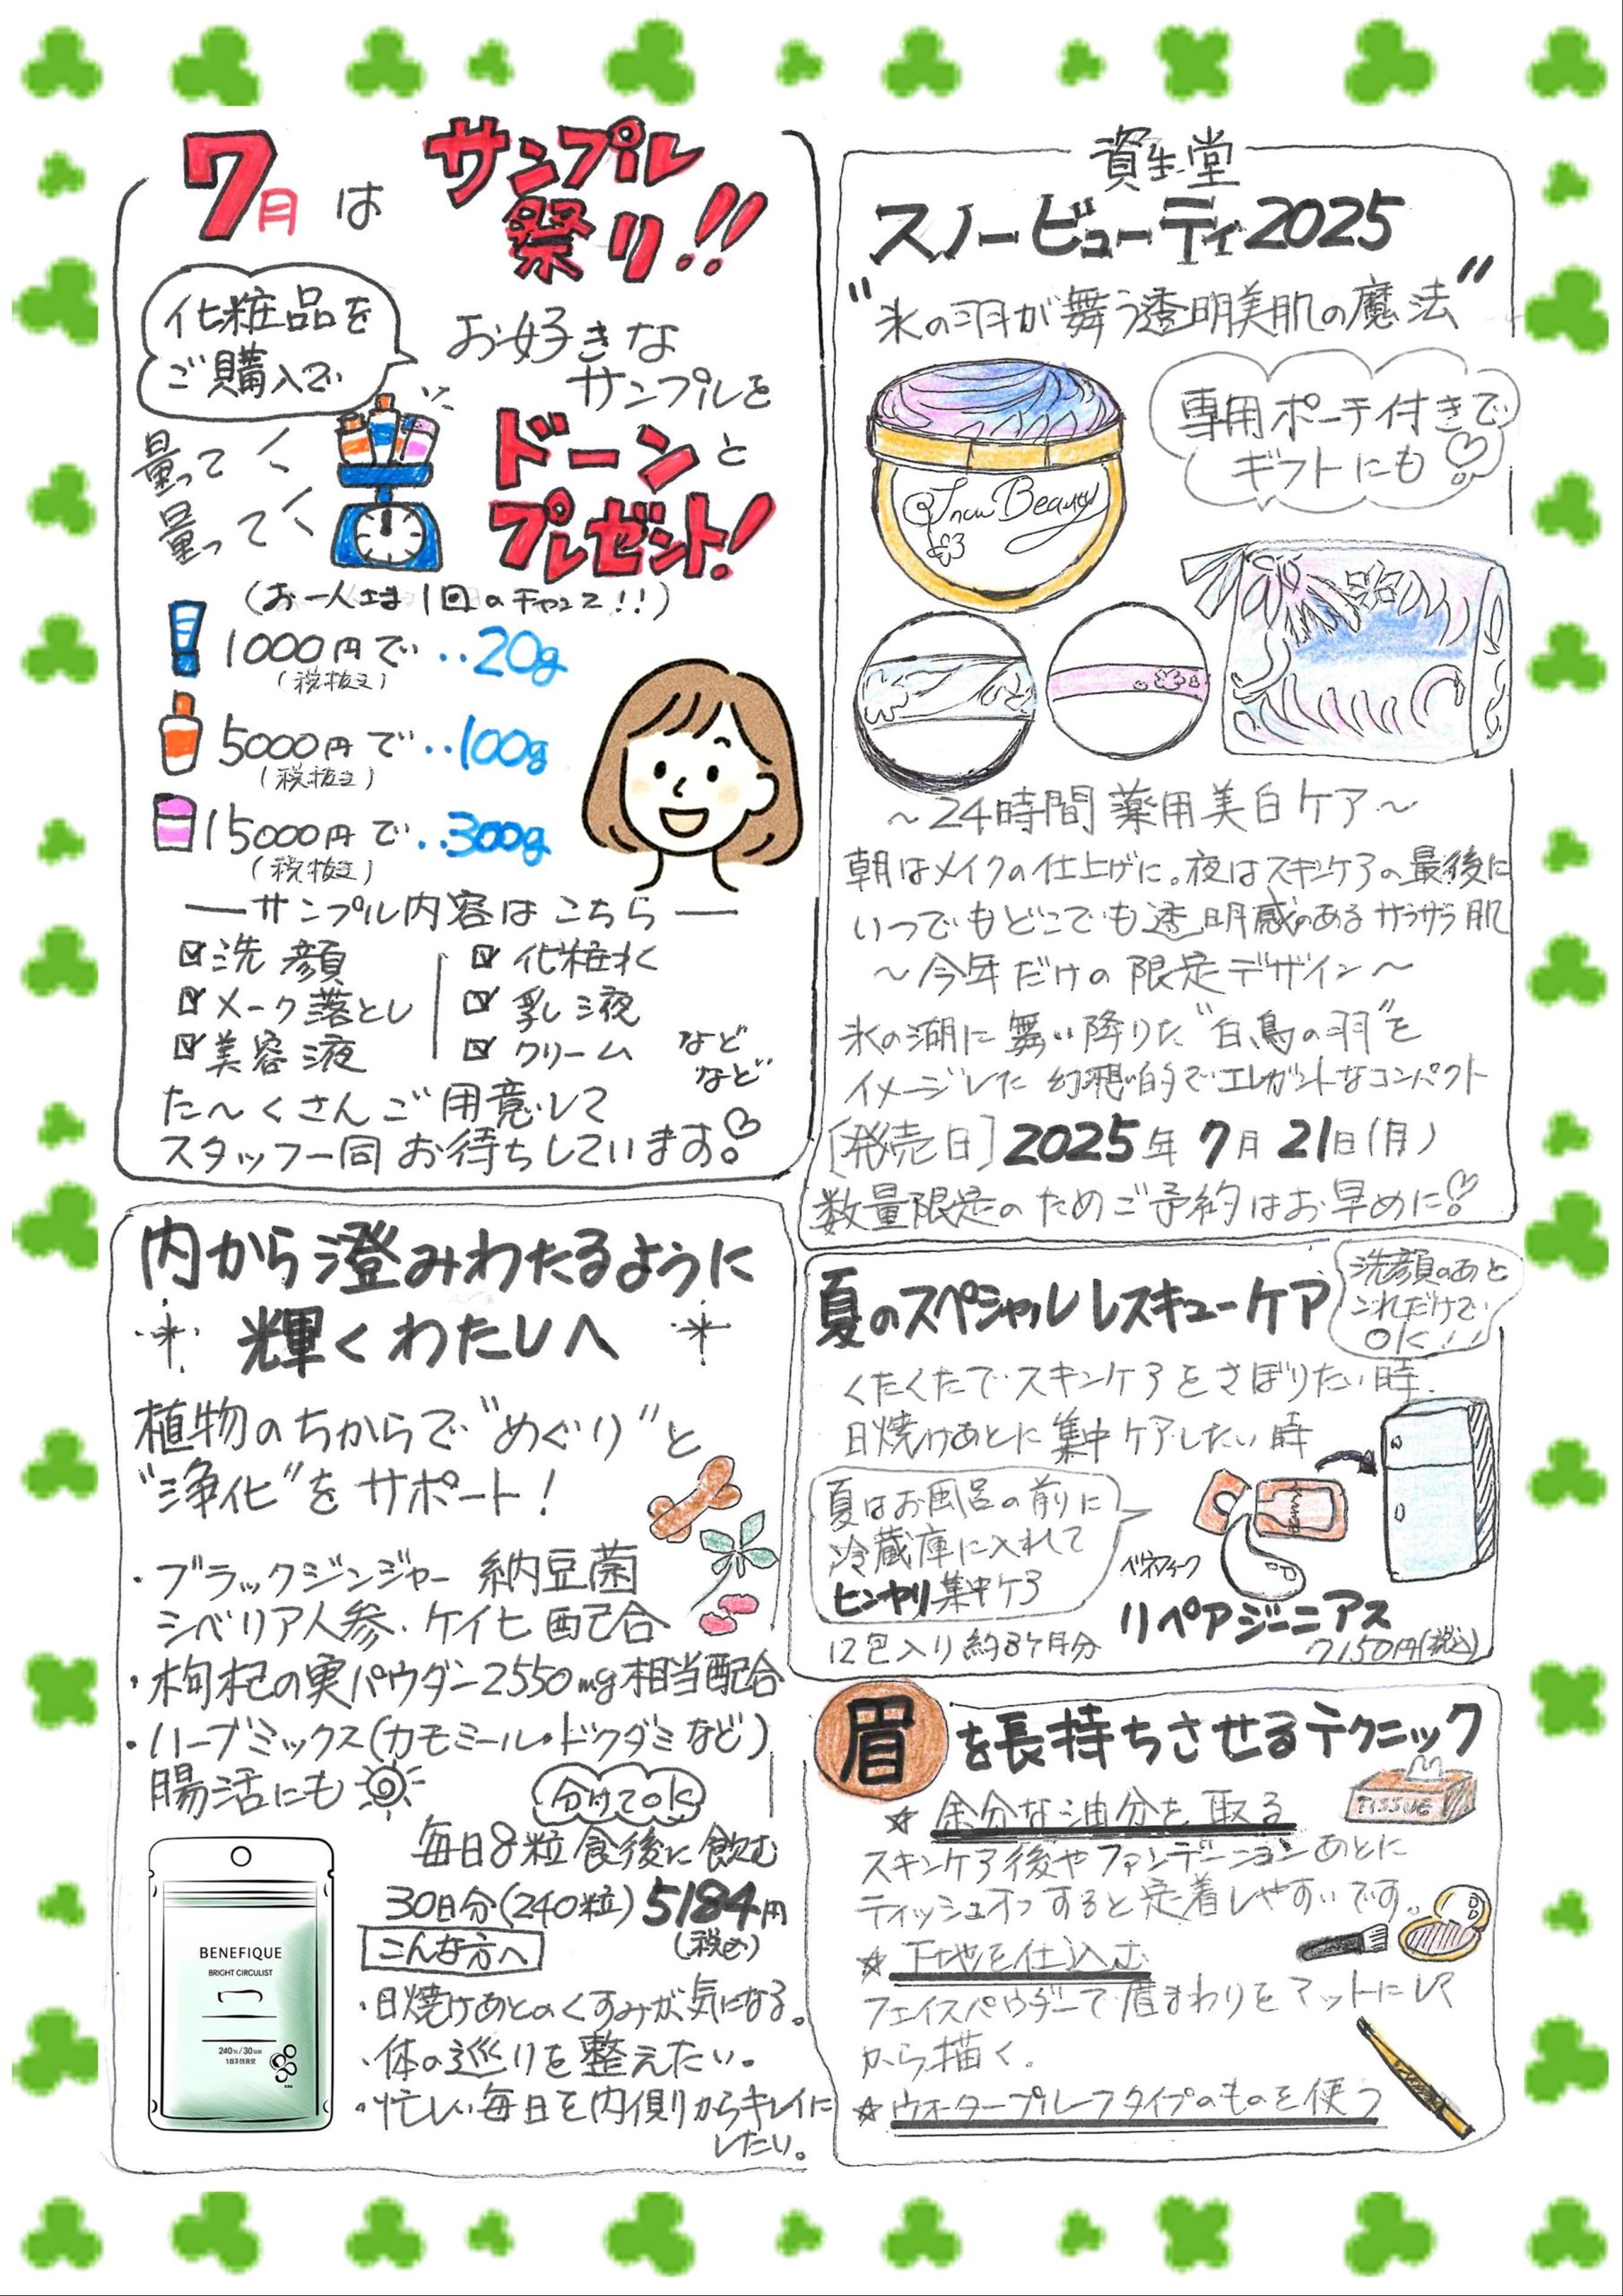 7月は サンプル
祭り!!
化粧品を
ご購入で
お好きな
サンプルを
ドーンと
プレゼント!
量って
量って
(お一人さま1回のチャンス!!)
1000円で‥20g
(税抜き)
5000円で‥100g
(税抜き)
15000円で‥300g
(税抜き)
―サンプル内容はこちら―
☑洗顔
☑メーク落とし
☑美容液
☑化粧水
☑乳液
☑クリーム
など
など
た〜くさんご用意して
スタッフ一同お待ちしています。
資生堂
スノービューティ2025
"氷の羽が舞う透明美肌の魔法"
専用ポーチ付きで
ギフトにも
Snow Beauty
〜24時間薬用美白ケア〜
朝はメイクの仕上げに。夜はスキンケアの最後に
いつでもどこでも透明感のあるサラサラ肌
〜今年だけの限定デザイン〜
氷の湖に舞い降りた"白鳥の羽"を
イメージした幻想的でエレガントなコンパクト
[発売日]2025年7月21日(月)
数量限定のためご予約はお早めに
内から澄みわたるように
輝くわたしへ
植物のちからで"めぐり"と
"浄化"をサポート!
・ブラックジンジャー 納豆菌
シベリア人参・ケイヒ配合
・枸杞の実パウダー2550mg相当配合
・ハーブミックス(カモミール・ドクダミなど)
腸活にも
分けてOK
毎日8粒食後に飲む
30日分(240粒)5184円
(税込)
こんな方へ
・日焼けあとのくすみが気になる。
・体の巡りを整えたい。
・忙しい毎日を内側からキレイに
したい。
BENEFIQUE
BRIGHT CIRCULIST
夏のスペシャルレスキューケア
洗顔のあと
これだけで
OK!!
くたくたでスキンケアをさぼりたい時。
日焼けあとに集中ケアしたい時
夏はお風呂の前に
冷蔵庫に入れて
ヒンヤリ集中ケア
ベネフィーク
リペアジーニアス
12包入り約3ケ月分
7150円(税込)
眉を長持ちさせるテクニック
☆余分な油分を取る
TISSUE
スキンケア後やファンデーションあとに
ティッシュオフすると定着しやすいです。
☆下地を仕込む
フェイスパウダーで眉まわりをマットにして
から描く。
☆ウォータープルーフタイプのものを使う